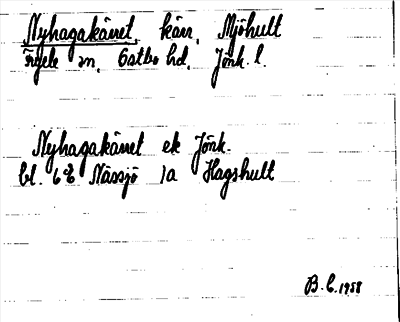 Nyhagakärret, kärr, Mjöhult
m, Östbo hd, Jönk. l.
Nyhagakärret ek Jönk.
bl. 6 Nässjö 1a Hagshult
B. C. 1958